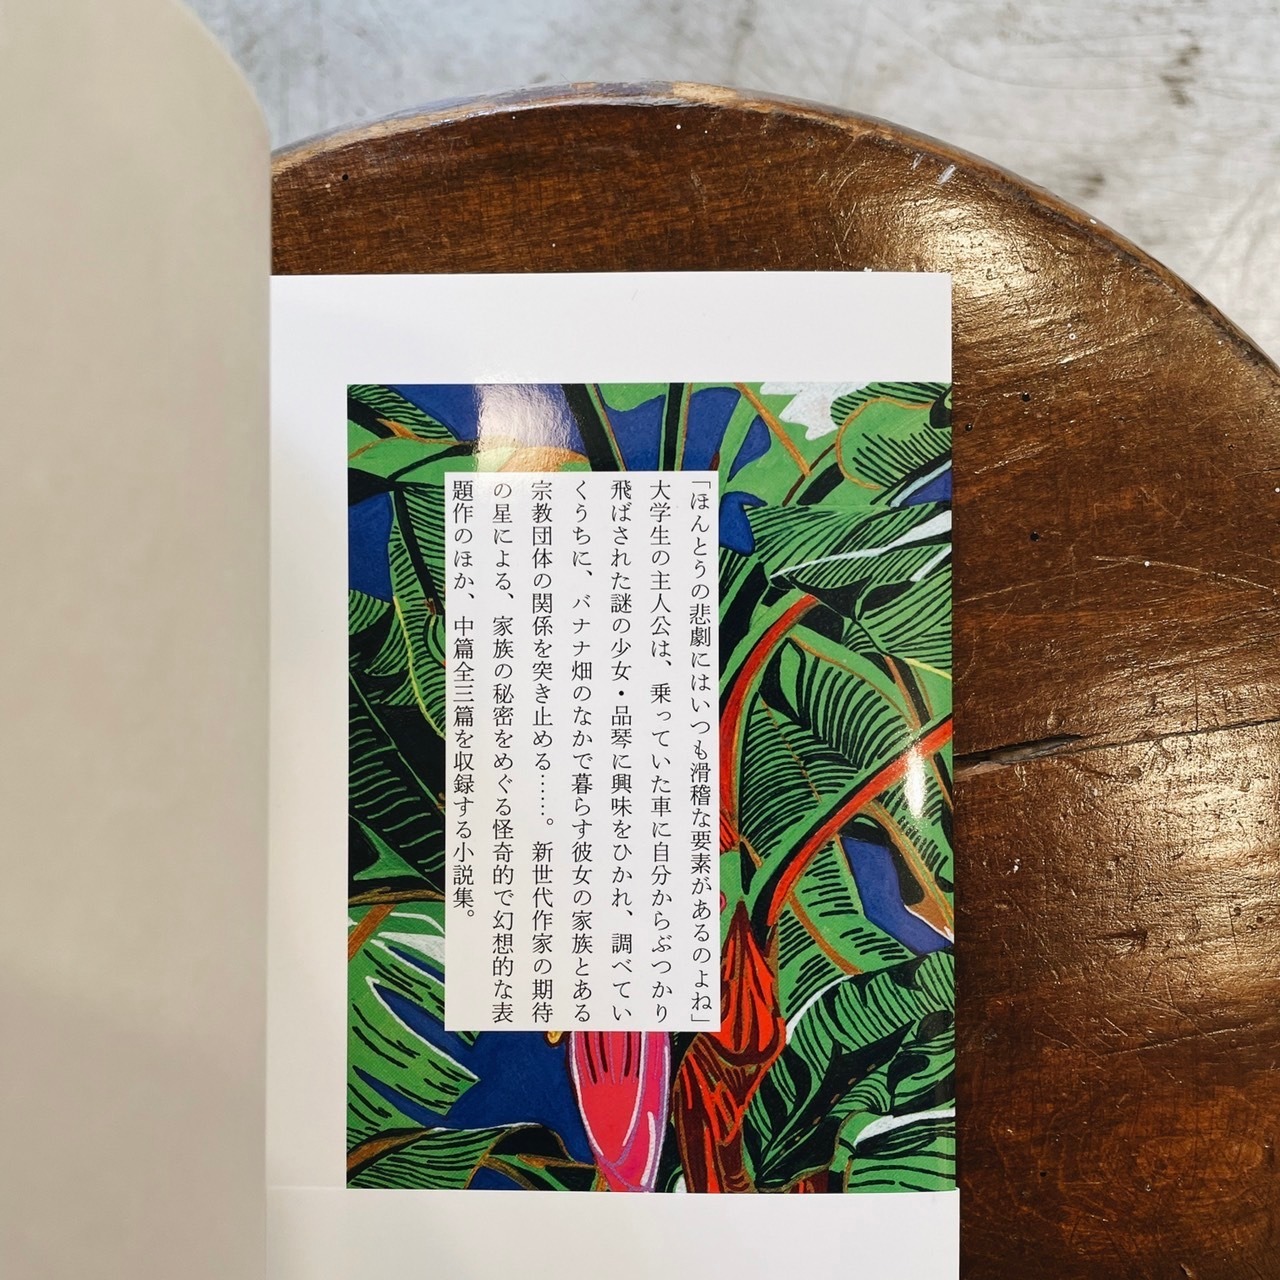 「ほんとうの悲劇にはいつも滑稽な要素があるのよね」
大学生の主人公は、乗っていた車に自分からぶつかり
飛ばされた謎の少女・品琴に興味をひかれ、調べてい
くうちに、バナナ畑のなかで暮らす彼女の家族とある
宗教団体の関係を突き止める……。新世代作家の期待
の星による、家族の秘密をめぐる怪奇的で幻想的な表
題作のほか、中篇全三篇を収録する小説集。